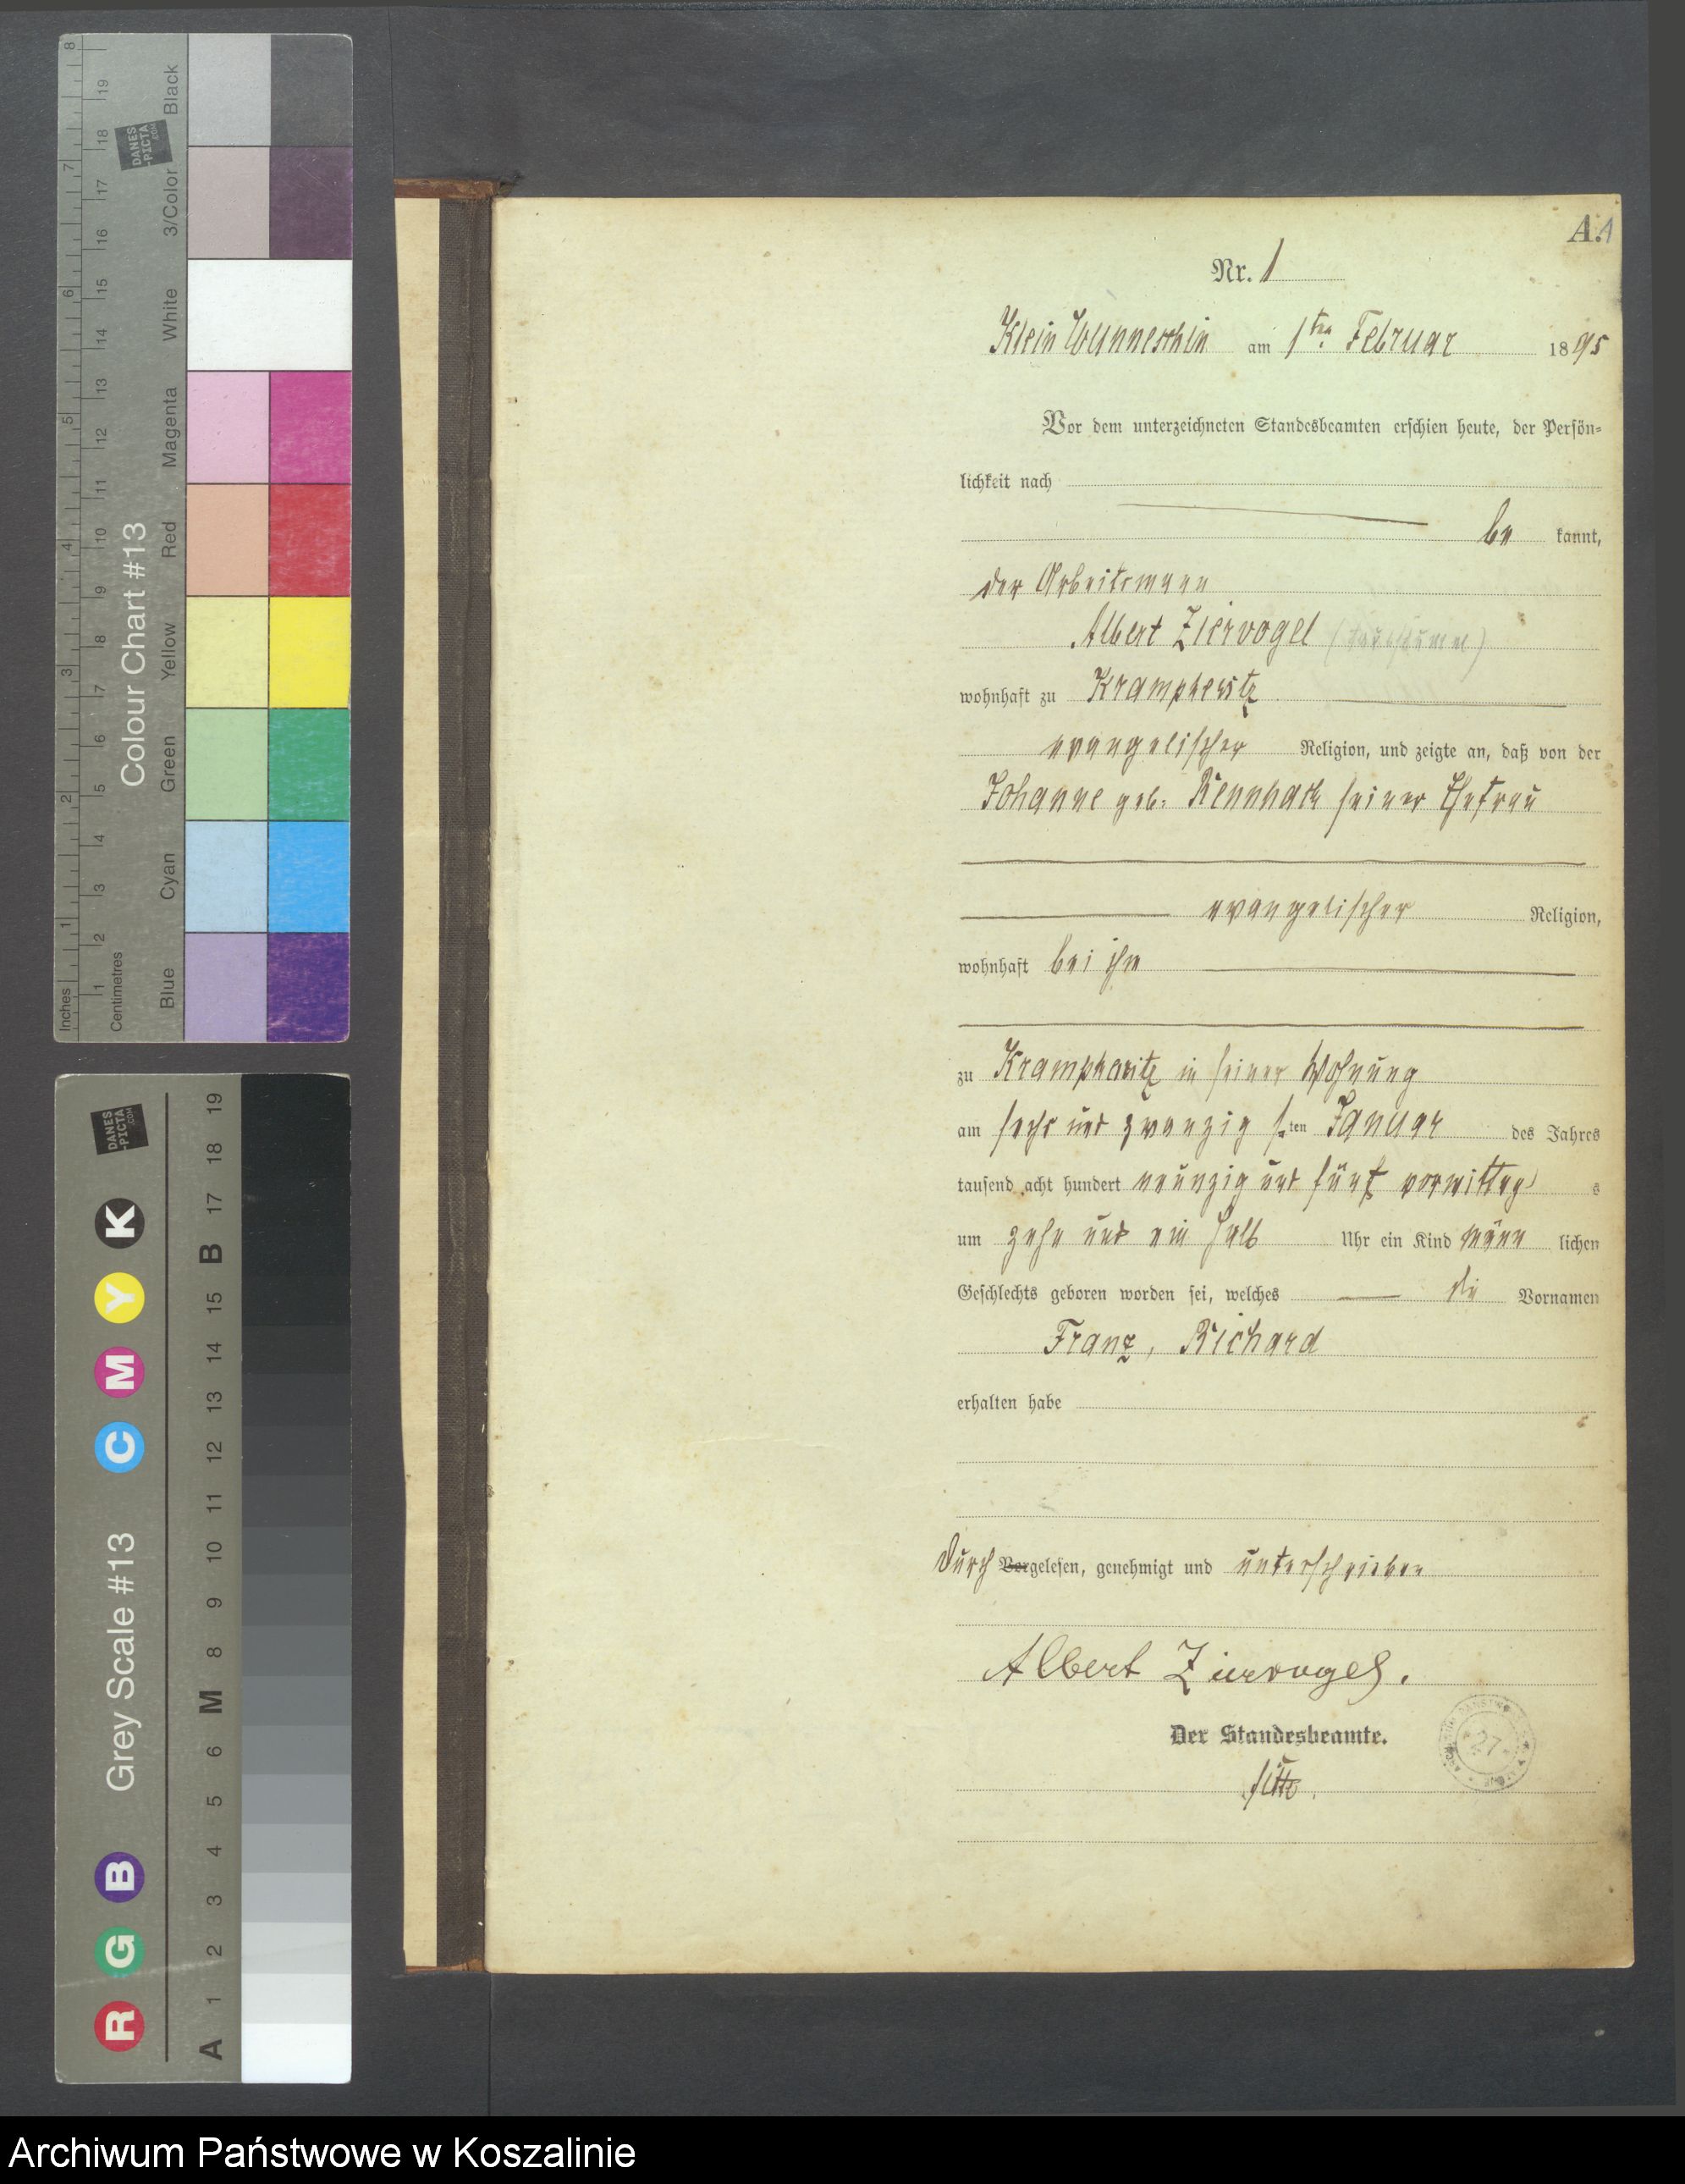 A.1
Nr. 1
Klein Wunneschin am 1ten Februar 1895
Vor dem unterzeichneten Standesbeamten erschien heute, der Persön-
lichkeit nach
be kannt,
der Arbeitsmann
Albert Ziervogel (taubstumm)
wohnhaft zu Krampkewitz
evangelischer Religion, und zeigte an, daß von der
Johanne geb. Rennhack seiner Ehefrau
evangelischer Religion,
wohnhaft bei ihm
zu Krampkewitz in seiner Wohnung
am sechs und zwanzigsten Januar des Jahres
tausend acht hundert neunzig und fünf vormittags
um zehn und ein halb Uhr ein Kind männlichen
Geschlechts geboren worden sei, welches die Vornamen
Franz, Richard
erhalten habe
durch Vorgelesen, genehmigt und unterschrieben
Albert Ziervogel.
Der Standesbeamte.
27
Colour Chart #13
Inches 1 2 3 4 5 6 7 8
Centimetres 1 2 3 4 5 6 7 8 9 10 11 12 13 14 15 16 17 18 19
Blue Cyan Green Yellow Red Magenta White 3/Color Black
DANES
-PICTA
.COM
Grey Scale #13
R G B C M Y K
DANES
-PICTA
.COM
A 1 2 3 4 5 6 M 8 9 10 11 12 13 14 15 B 17 18 19
Archiwum Państwowe w Koszalinie